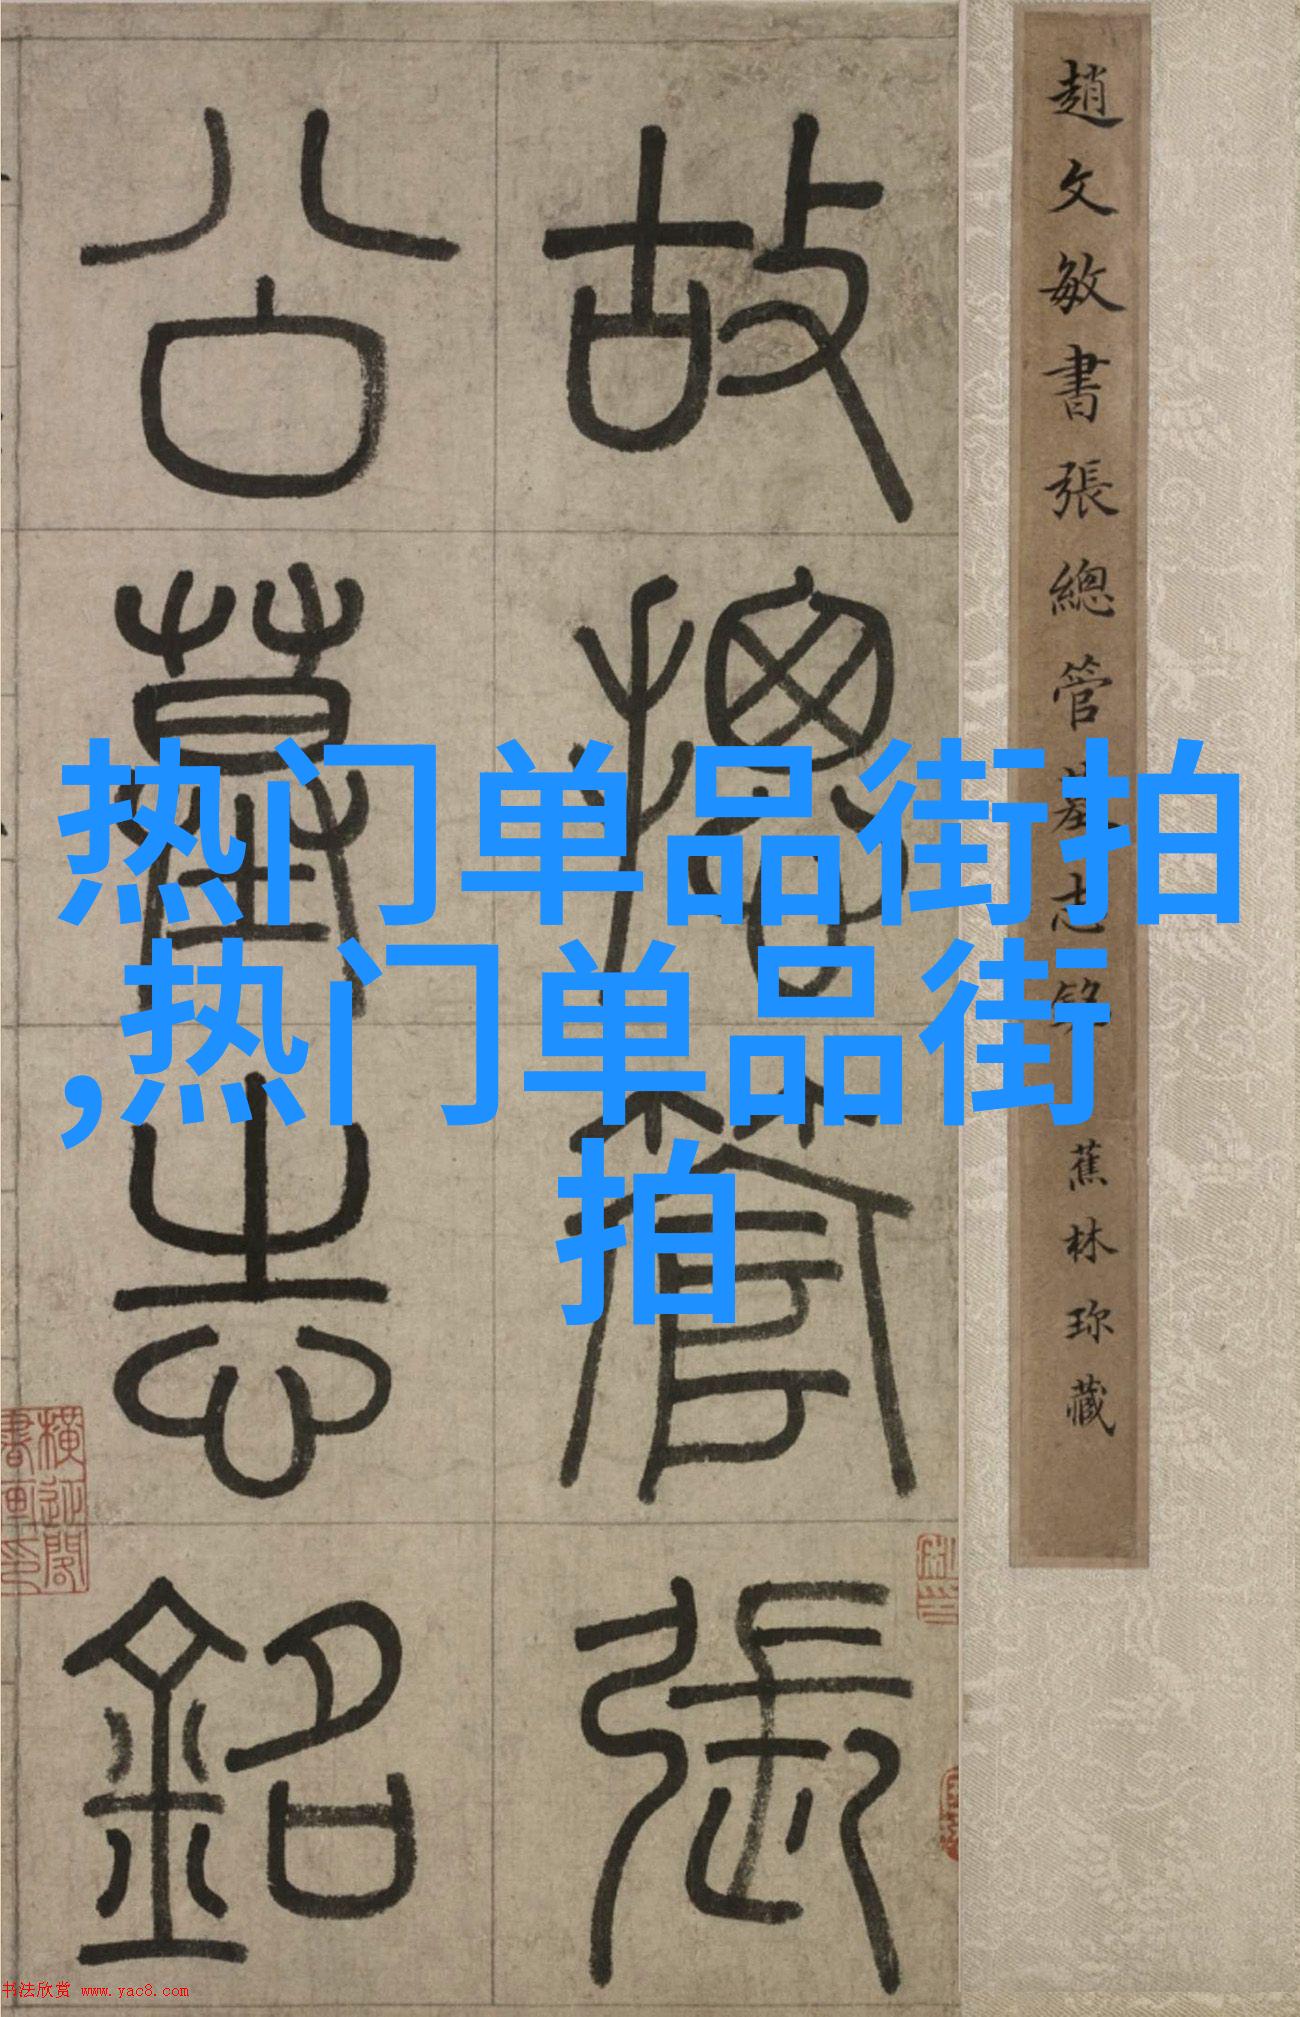 趙文敏書張總管墓志銘
蕉林珍藏
故總管張
公墓志銘
热门单品街拍
,热门单品街
拍
书法欣赏 www.yac8.com